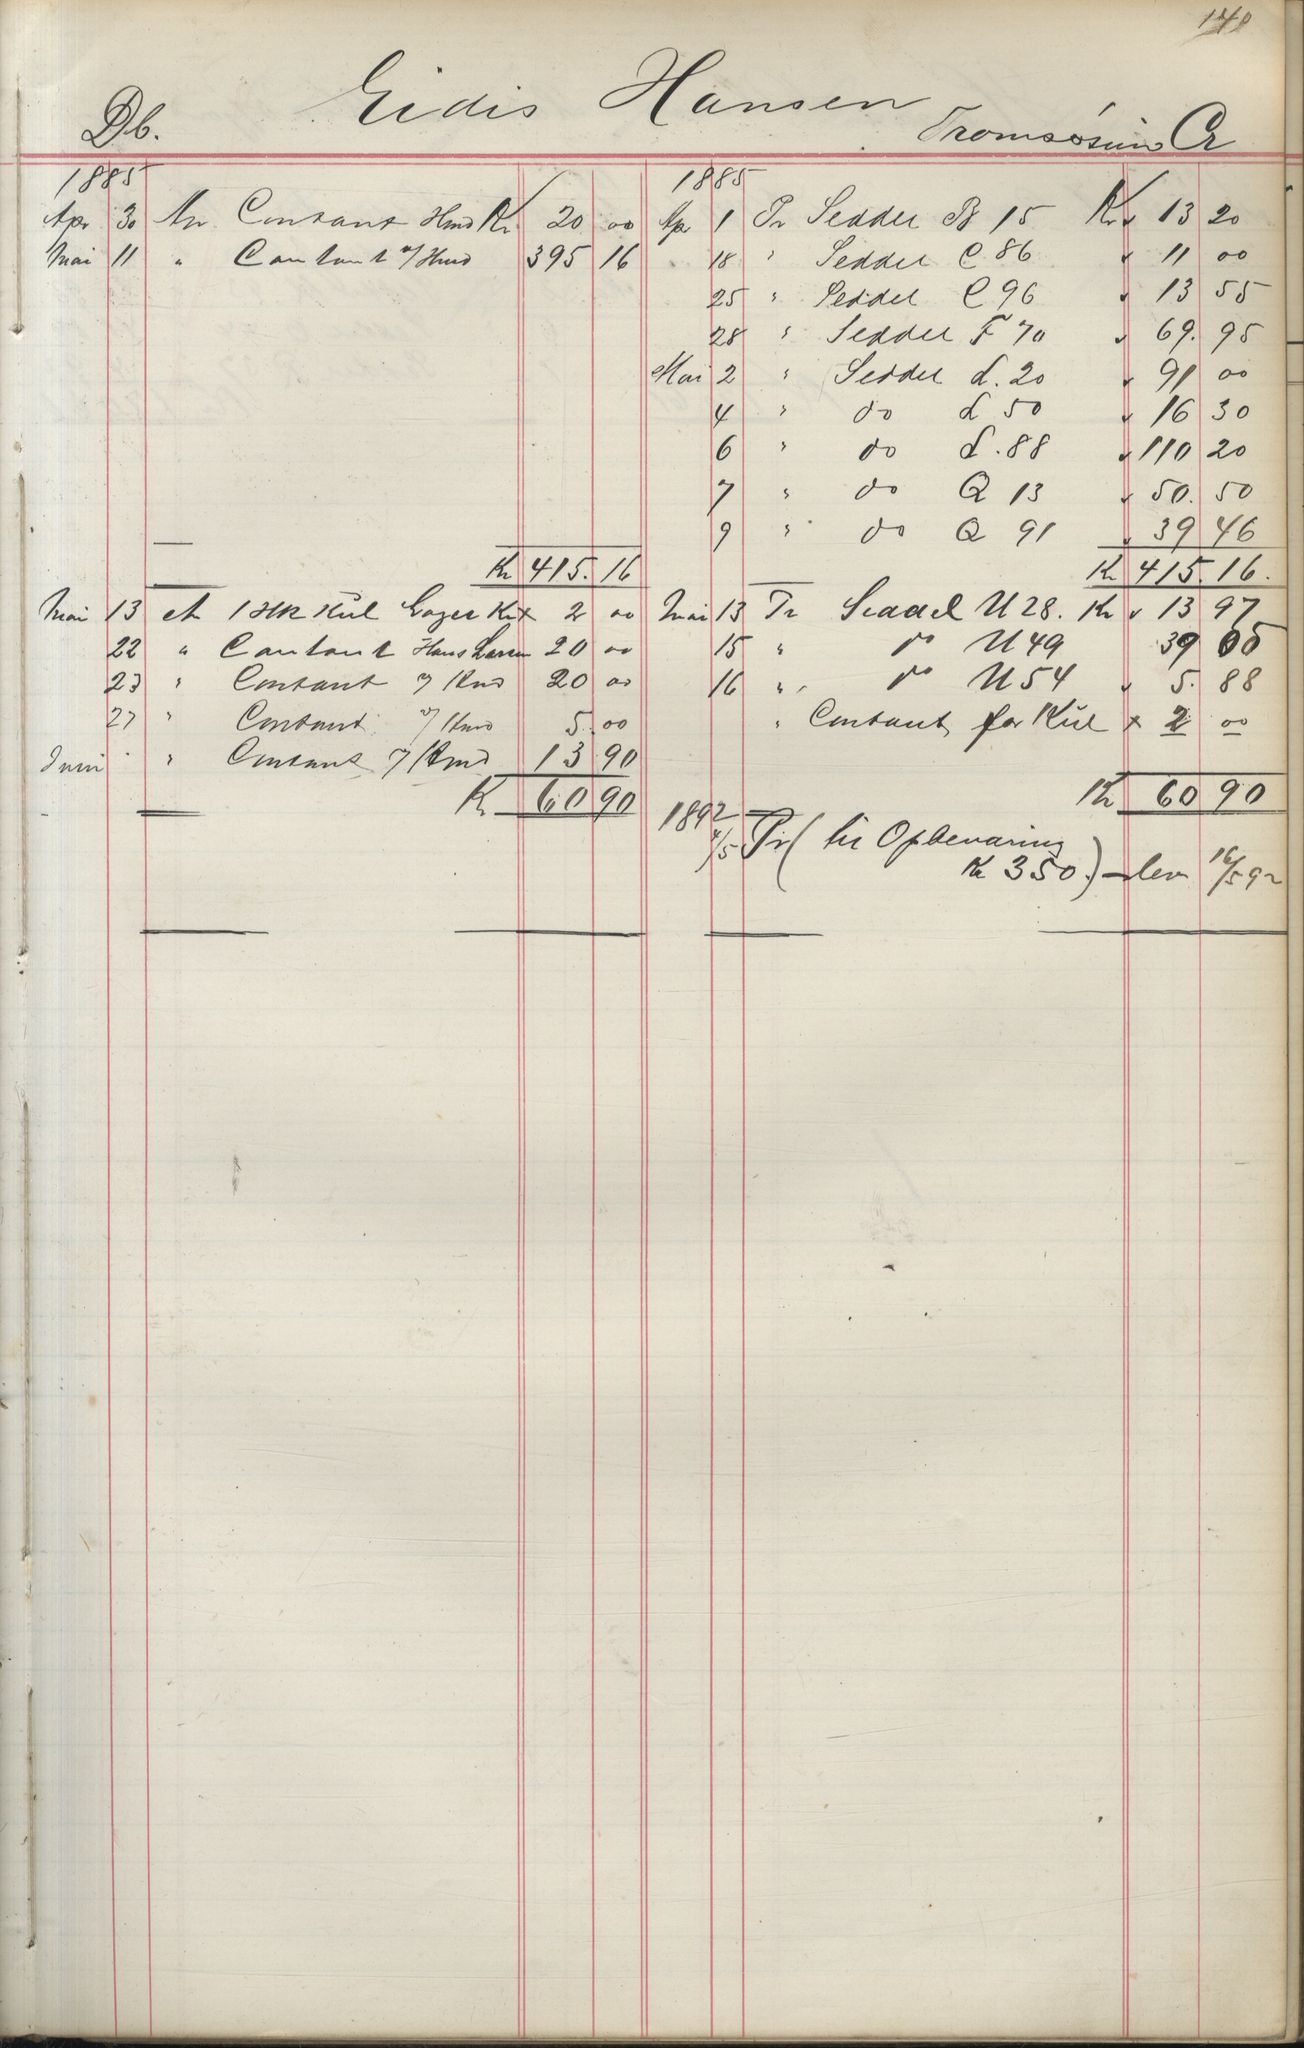 140
Eidis Hansen
Db. Tromsøsund Cr
1885
Apr 30 An Contant Hmd Kr 20 00
Mai 11 " Contant v/ Hmd 395 16
Kr 415.16
Mai 13 An 1 Hk Kul Kr x 2 00
22 " Contant Hans Larsen 20 00
23 " Contant v/ Hmd 20 00
27 " Contant v/ Hmd 5.00
Juni " Contant v/ Hmd 13 90
Kr 60 90
1885
Apr 1 Pr Seddel B 15 Kr 13 20
18 " Seddel C 86 11 00
25 " Seddel C 96 13 55
28 " Seddel F 70 69.95
Mai 2 " Seddel L. 20 91 00
4 " do L 50 16 30
6 " do L. 88 110 20
7 " do Q 13 50.50
9 " do Q 91 39 46
Kr 415.16.
Mai 13 Pr Seddel U 28. Kr 13 97
15 " do U 49 39 05
16 " do U 54 5.88
" Contant for Kul x 2 00
Kr 60 90
1892
4/5 Pr (til Opbevaring
Kr 350.) - lev 16/5 92